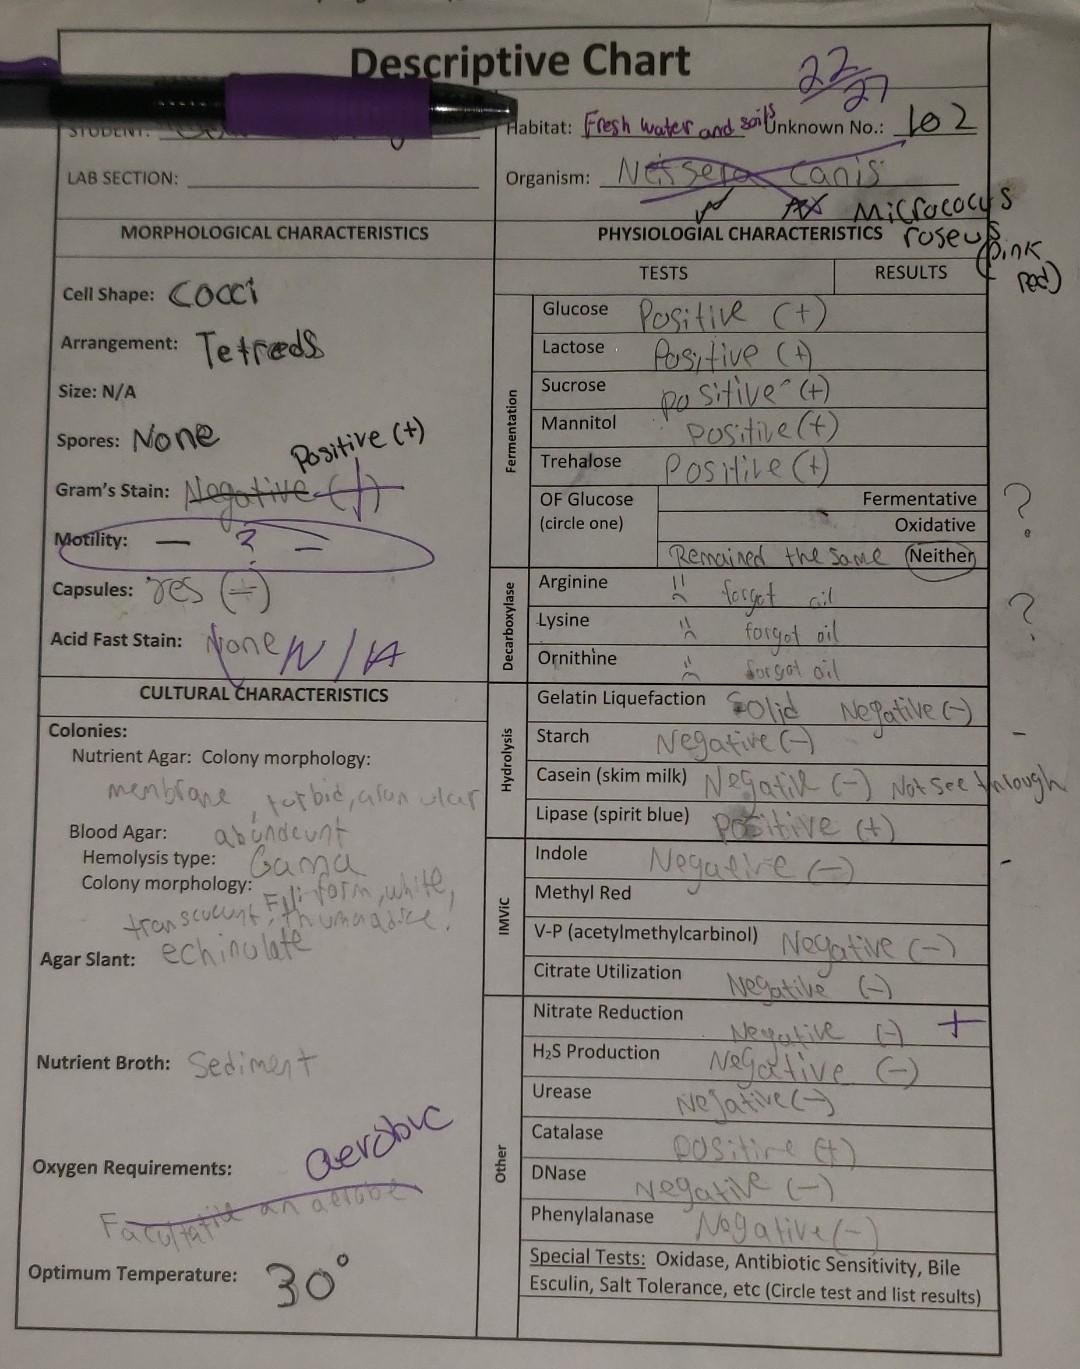 Descriptive Chart
22/27
STUDENT:
Habitat: Fresh water and soils Unknown No.: 102
LAB SECTION:
Organism: Neissera canis
Micrococus
roseus
(pink
red)
MORPHOLOGICAL CHARACTERISTICS
Cell Shape: Cocci
Arrangement: Tetreds
Size: N/A
Spores: None
Positive (+)
Gram's Stain: Negative (-)
Motility: — ? =
Capsules: Yes (+)
Acid Fast Stain: None N/A
CULTURAL CHARACTERISTICS
Colonies:
Nutrient Agar: Colony morphology:
membrane, turbid,
Blood Agar: abundeunt
Hemolysis type: Gama
Colony morphology: Filiform, white,
Agar Slant: echinulate
Nutrient Broth: Sediment
Oxygen Requirements: aerobic
Facultative an aerobe
Optimum Temperature: 30°
PHYSIOLOGIAL CHARACTERISTICS
TESTS RESULTS
Fermentation
Glucose Positive (+)
Lactose Positive (+)
Sucrose positive (+)
Mannitol positive (+)
Trehalose Positive (+)
OF Glucose Fermentative ?
(circle one) Oxidative
Remained the same Neither
Decarboxylase
Arginine forgot oil ?
Lysine forgot oil
Ornithine forgot oil
Hydrolysis
Gelatin Liquefaction Solid Negative (-)
Starch Negative (-) -
Casein (skim milk) Negative (-) Not see through
Lipase (spirit blue) Positive (+)
IMViC
Indole Negative (-) -
Methyl Red
V-P (acetylmethylcarbinol) Negative (-)
Citrate Utilization Negative (-)
Other
Nitrate Reduction Negative (-) +
H₂S Production Negative (-)
Urease Negative (-)
Catalase positive (+)
DNase Negative (-)
Phenylalanase Negative (-)
Special Tests: Oxidase, Antibiotic Sensitivity, Bile
Esculin, Salt Tolerance, etc (Circle test and list results)